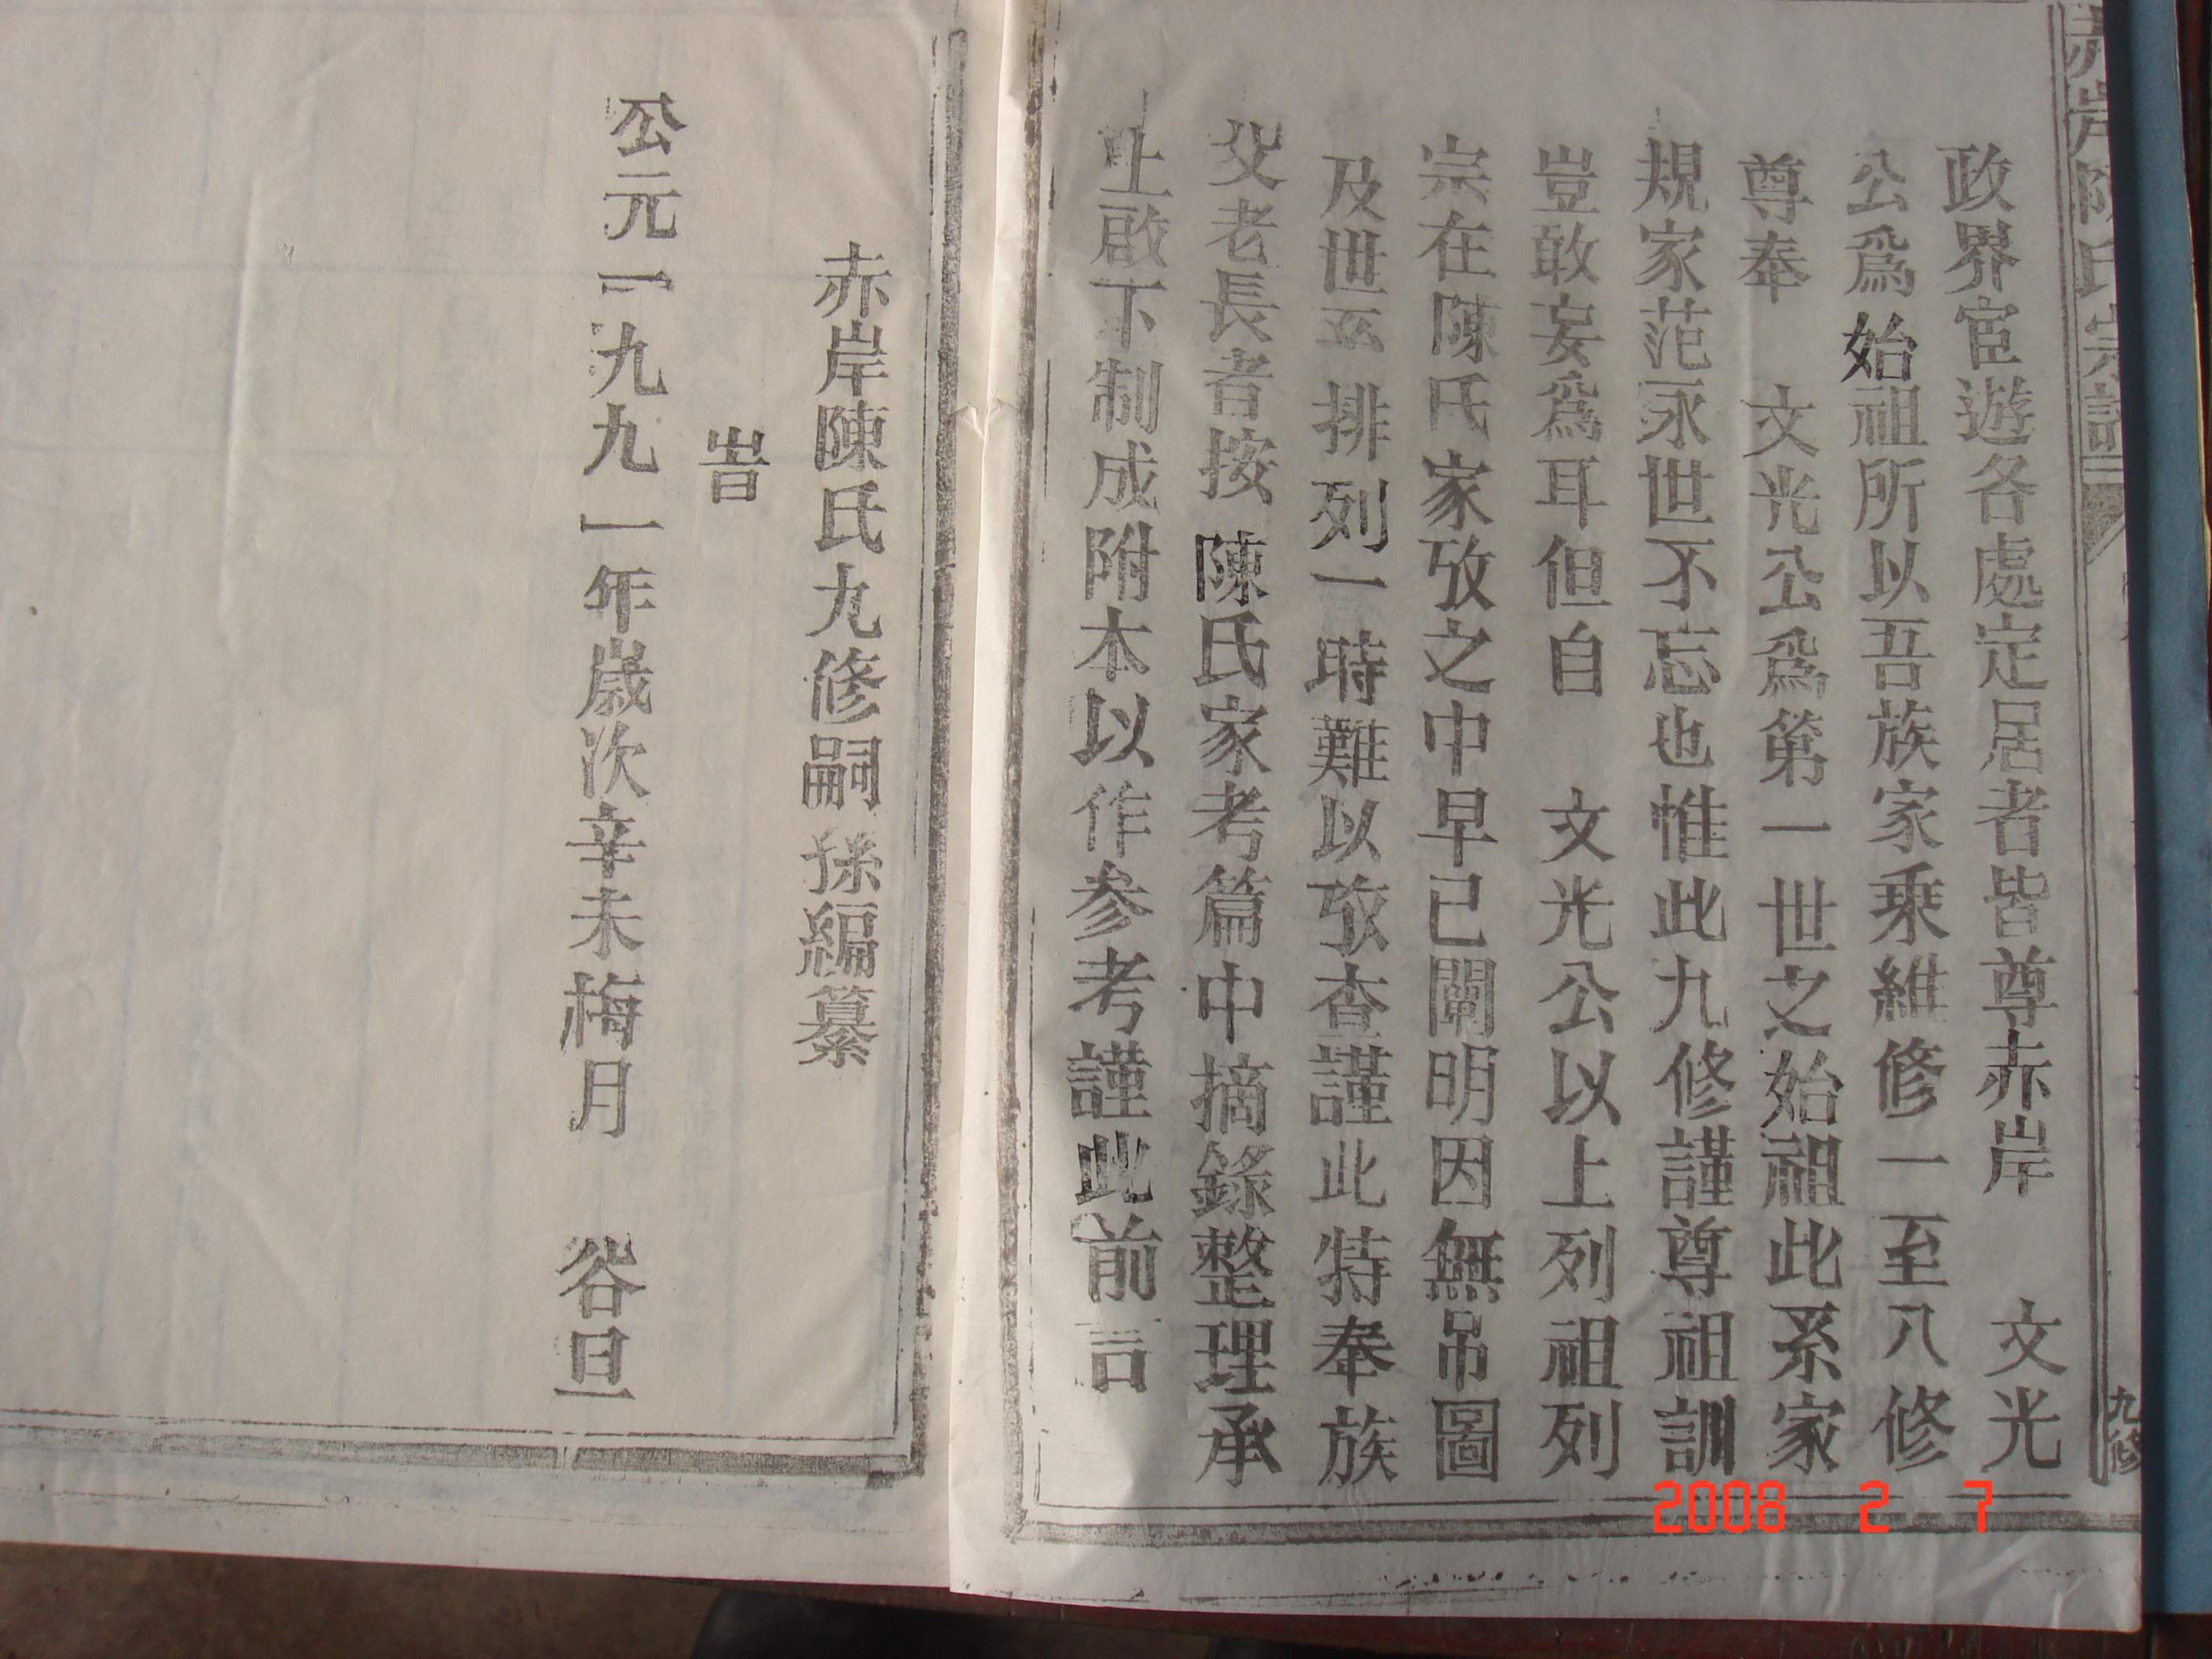 赤岸陳氏宗譜
九修
政界宦遊各處定居者皆尊赤岸 文光
公爲始祖所以吾族家乘維修一至八修
尊奉 文光公爲第一世之始祖此系家
規家范永世不忘也惟此九修謹尊祖訓
豈敢妄爲耳但自 文光公以上列祖列
宗在陳氏家攷之中早已闡明因無吊圖
及世系排列一時難以攷查謹此特奉族
父老長者按陳氏家考篇中摘錄整理承
上啟下制成附本以作参考謹此前言
赤岸陳氏九修嗣孫編纂
旹
公元一九九一年歲次辛未梅月 谷旦
2008 2 7